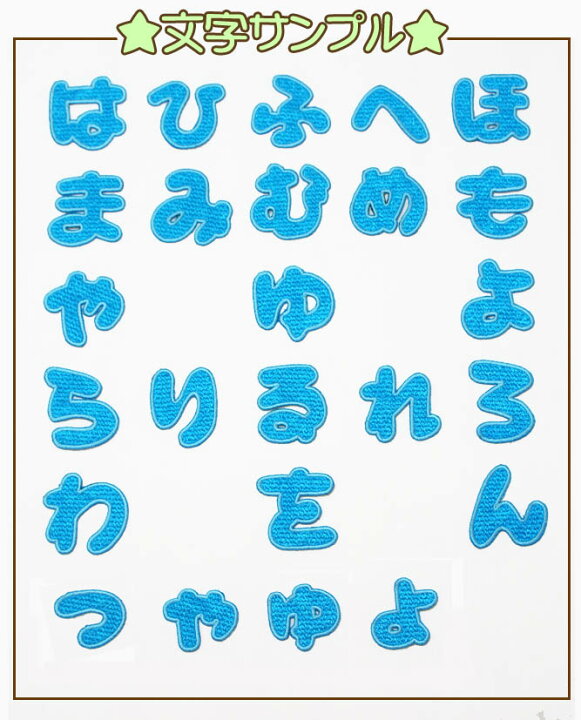 ★文字サンプル★
はひふへほ
まみむめも
やゆよ
らりるれろ
わをん
っゃゅょ